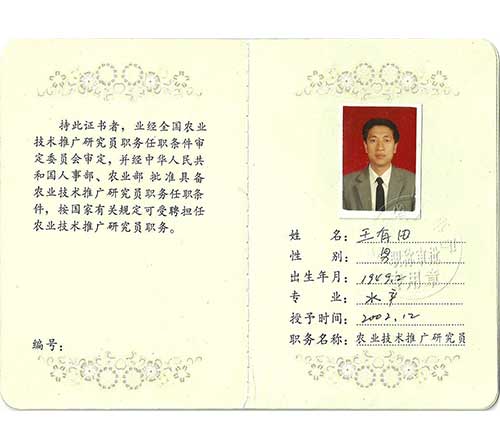 持此证书者，业经全国农业
技术推广研究员职务任职条件审
定委员会审定，并经中华人民共
和国人事部、农业部 批准具备
农业技术推广研究员职务任职条
件，按国家有关规定可受聘担任
农业技术推广研究员职务。
编号：
姓名：王有田
性别：男
出生年月：1949.2
专业：水产
授予时间：2002.12
职务名称：农业技术推广研究员
职务审批
专用章